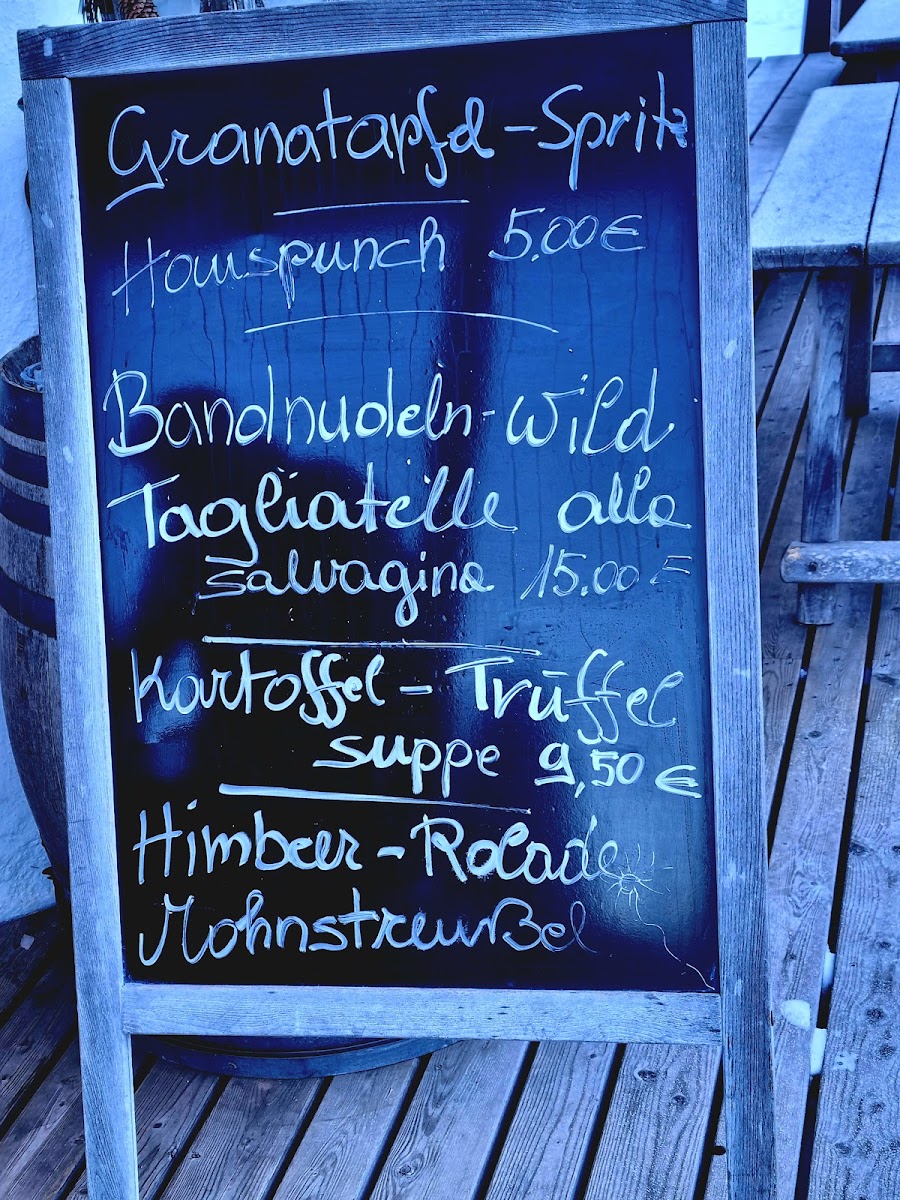 Granatapfel-Spritz
Hauspunch 5.00€
Bandnudeln-Wild
Tagliatelle alla
salvagina 15.00 €
Kartoffel-Trüffel
suppe 9,50 €
Himbeer-Rolade
Mohnstreußel